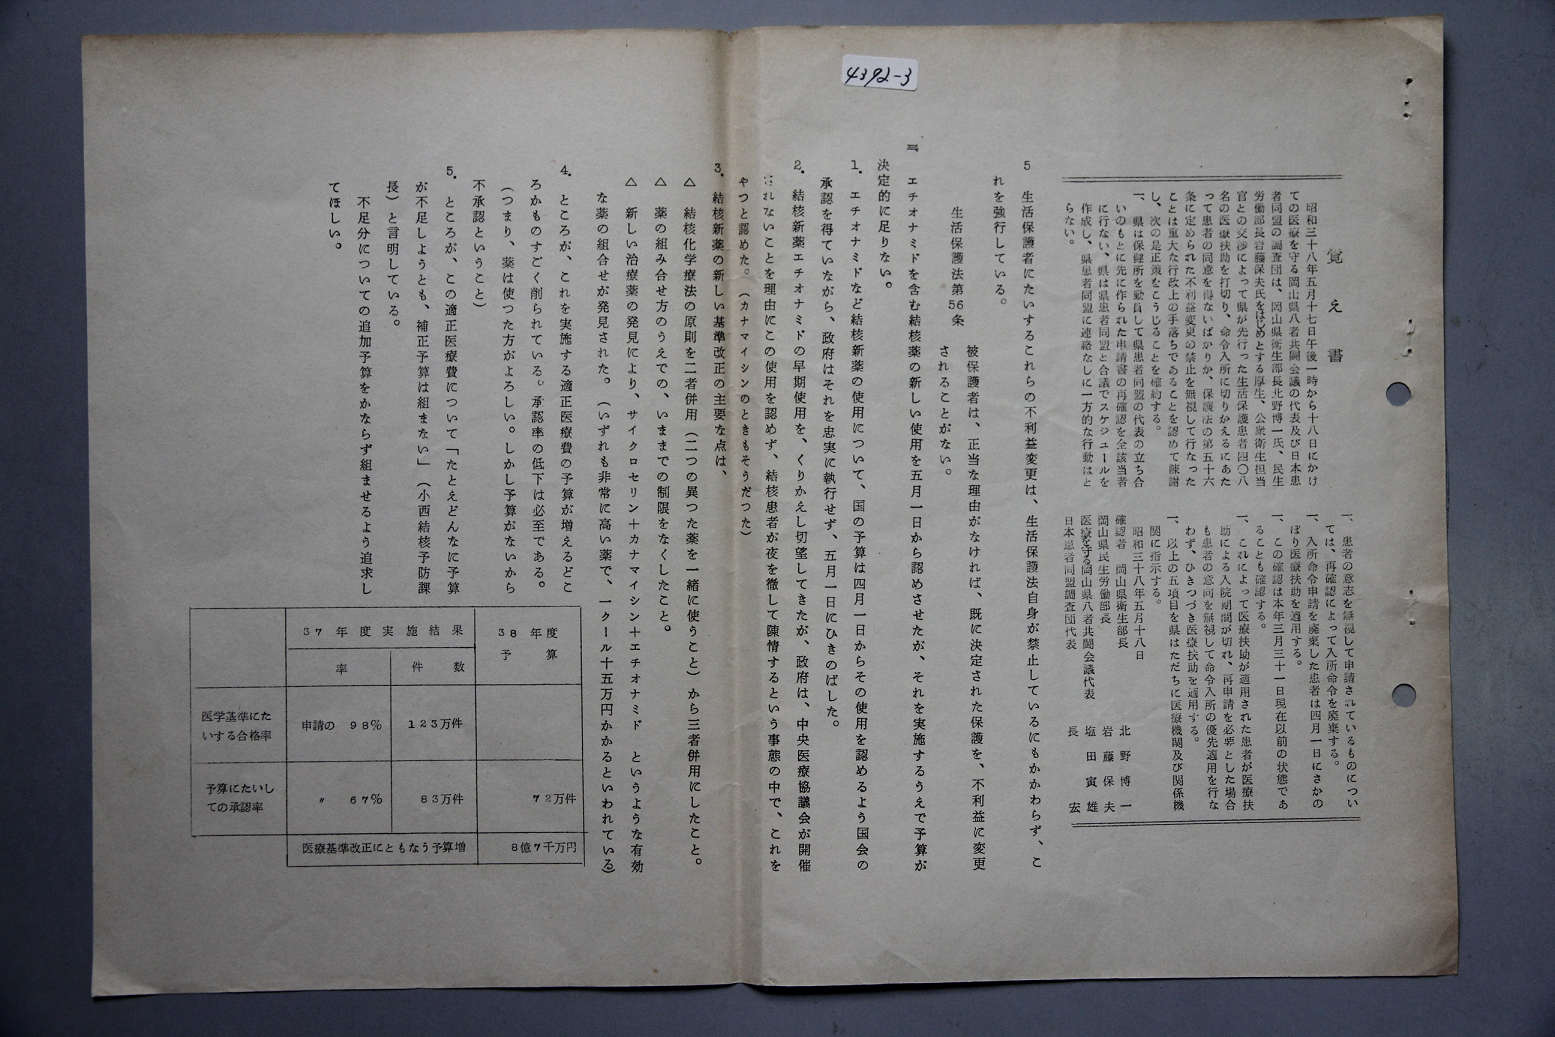 4392-3
覚え書
昭和三十八年五月十七日午後一時から十八日にかけ
ての医療を守る岡山県八者共闘会議の代表及び日本患
者同盟の調査団は、岡山県衛生部長北野博一氏、民生
労働部長岩藤保夫氏をはじめとする厚生、公衆衛生担当
官との交渉によって県が先行った生活保護患者四〇八
名の医療扶助を打切り、命令入所に切りかえるにあた
って患者の同意を得ないばかりか、保護法の第五十六
条に定められた不利益変更の禁止を無視して行なった
ことは重大な行政上の手落ちであることを認めて陳謝
し、次の是正策をこうじることを確約する。
一、県は保健所を動員して県患者同盟の代表の立ち合
いのもとに先に作られた申請書の再確認を全該当者
に行ない、県は県患者同盟と合議でスケジュールを
作成し、県患者同盟に連絡なしに一方的な行動はと
らない。
一、患者の意志を無視して申請されているものについ
ては、再確認によって入所命令を廃棄する。
一、入所命令申請を廃棄した患者は四月一日にさかの
ぼり医療扶助を適用する。
一、この確認は本年三月三十一日現在以前の状態であ
ることも確認する。
一、これによって医療扶助が適用された患者が医療扶
助による入院期間が切れ、再申請を必要とした場合
も患者の意向を無視して命令入所の優先適用を行な
わず、ひきつづき医療扶助を適用する。
一、以上の五項目を県はただちに医療機関及び関係機
関に指示する。
昭和三十八年五月十八日
確認者 岡山県衛生部長 北野博一
岡山県民生労働部長 岩藤保夫
医療を守る岡山県八者共闘会議代表 塩田寅雄
日本患者同盟調査団代表 長 宏
5 生活保護者にたいするこれらの不利益変更は、生活保護法自身が禁止しているにもかかわらず、こ
れを強行している。
生活保護法第56条 被保護者は、正当な理由がなければ、既に決定された保護を、不利益に変更
されることがない。
エチオナミドを含む結核薬の新しい使用を五月一日から認めさせたが、それを実施するうえで予算が
決定的に足りない。
1. エチオナミドなど結核新薬の使用について、国の予算は四月一日からその使用を認めるよう国会の
承認を得ていながら、政府はそれを忠実に執行せず、五月一日にひきのばした。
2. 結核新薬エチオナミドの早期使用を、くりかえし切望してきたが、政府は、中央医療協議会が開催
されないことを理由にこの使用を認めず、結核患者が夜を徹して陳情するという事態の中で、これを
やつと認めた。(カナマイシンのときもそうだつた)
3. 結核新薬の新しい基準改正の主要な点は、
△ 結核化学療法の原則を二者併用(二つの異つた薬を一緒に使うこと)から三者併用にしたこと。
△ 薬の組み合せ方のうえでの、いままでの制限をなくしたこと。
△ 新しい治療薬の発見により、サイクロセリン+カナマイシン+エチオナミド というような有効
な薬の組合せが発見された。(いずれも非常に高い薬で、一クール十五万円かかるといわれている)
4. ところが、これを実施する適正医療費の予算が増えるどこ
ろかものすごく削られている。承認率の低下は必至である。
(つまり、薬は使つた方がよろしい。しかし予算がないから
不承認ということ)
5. ところが、この適正医療費について「たとえどんなに予算
が不足しようとも、補正予算は組まない」(小西結核予防課
長)と言明している。
不足分についての追加予算をかならず組ませるよう追求し
てほしい。
37年度実施結果 38年度予算
率 件数
医学基準にたいする合格率 申請の 98% 123万件
予算にたいしての承認率 〃 67% 83万件 72万件
医療基準改正にともなう予算増 8億7千万円